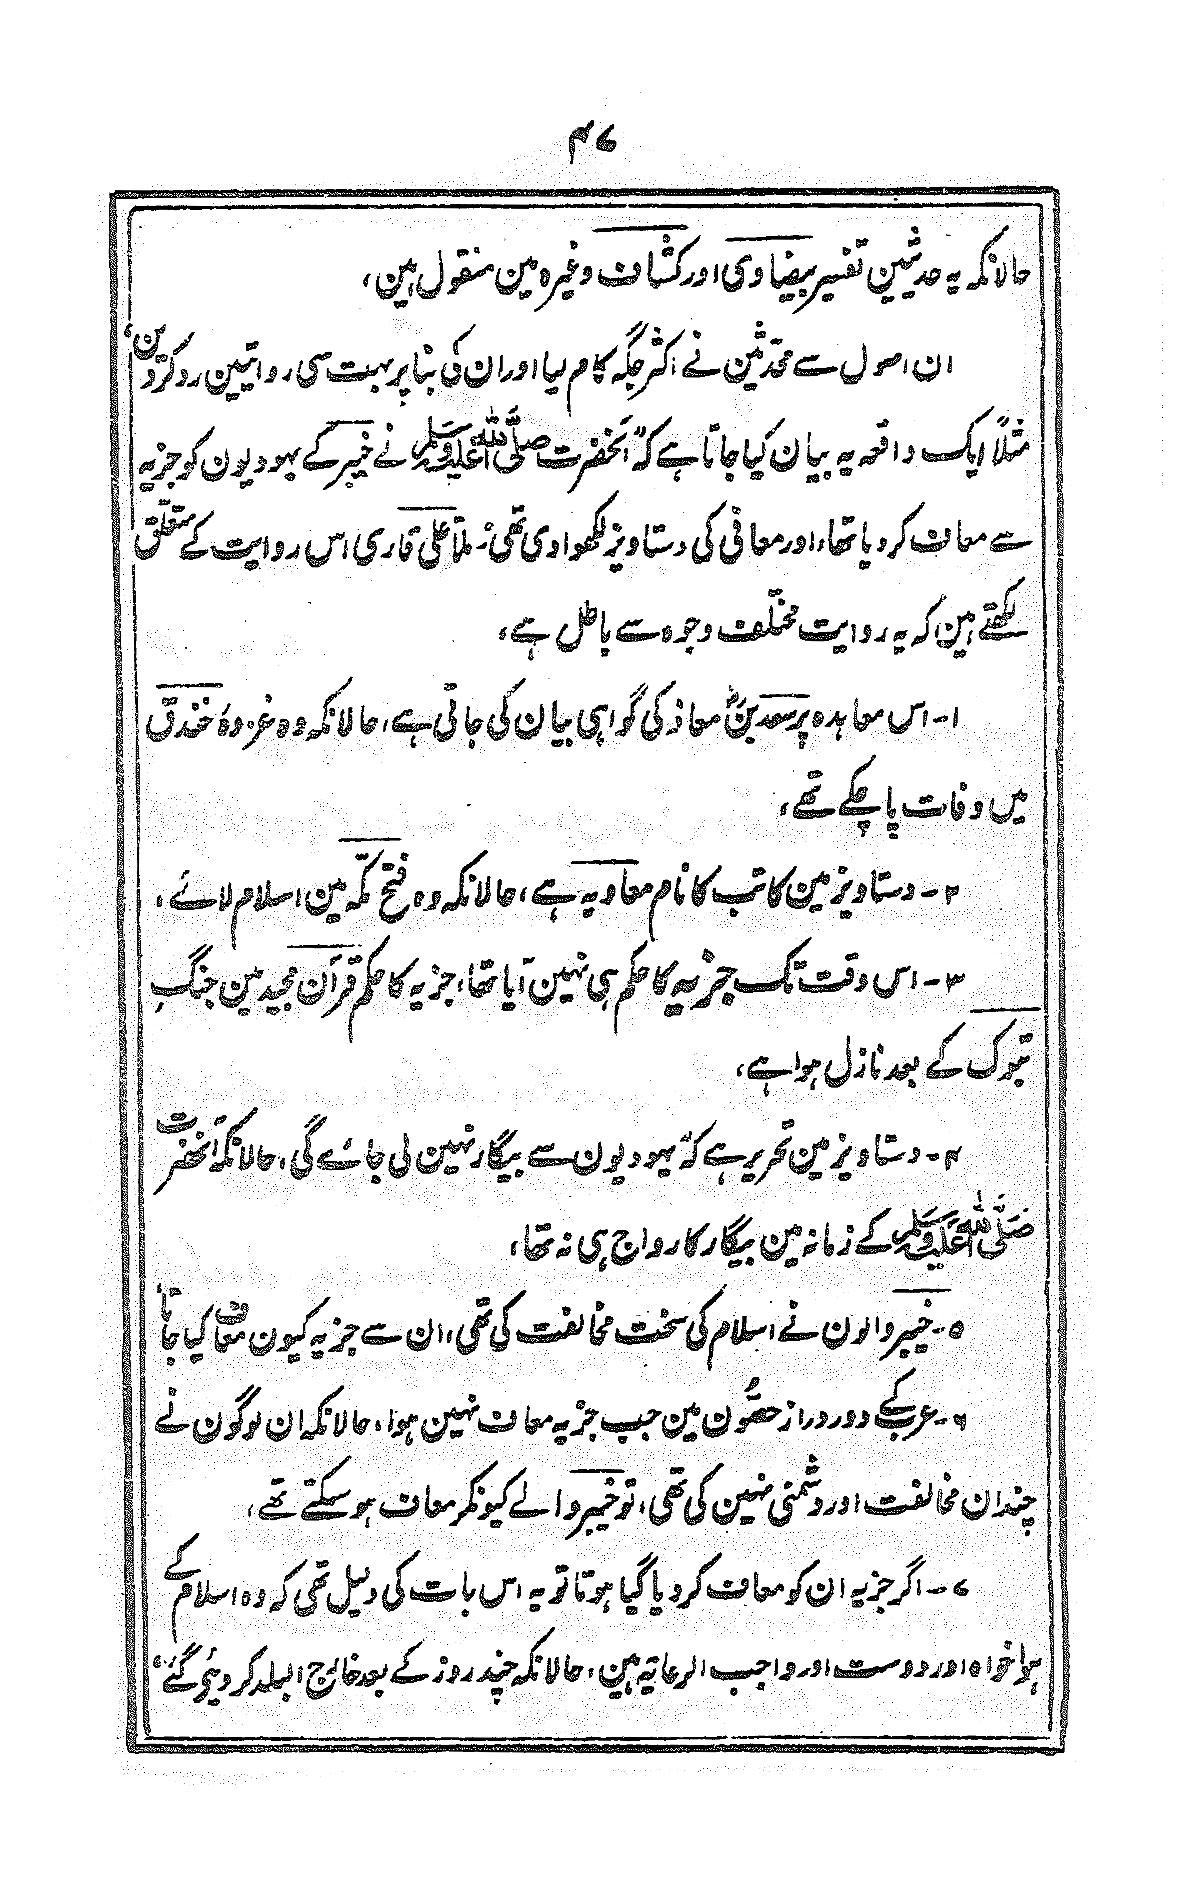 ۴۷
حالانکہ یہ حدیثین تفسیر بیضاوی اور کشاف وغیرہ مین منقول ہین،
ان اصول سے محدّثین نے اکثر جگہ کام لیا اور ان کی بنا پر بہت سی روایتین رد کردین،
مثلاً ایک واقعہ یہ بیان کیا جاتا ہے کہ "آنحضرت صلی اللہ علیہ وسلم نے خیبر کے یہودیون کو جزیہ
سے معاف کر دیا تھا، اور معافی کی دستاویز لکھوا دی تھی"، ملّا علی قاری اس روایت کے متعلّق
لکھتے ہین کہ یہ روایت مختلف وجوہ سے باطل ہے،
۱- اس معاہدہ پر سعد بنؓ معاذ کی گواہی بیان کی جاتی ہے، حالانکہ وہ غزوۂ خندق
میں وفات پا چکے تھے،
۲- دستاویز مین کاتب کا نام معاویہ ہے، حالانکہ وہ فتح مکّہ مین اسلام لائے،
۳- اس وقت تک جزیہ کا حکم ہی نہین آیا تھا، جزیہ کا حکم قرآن مجید مین جنگِ
تبوک کے بعد نازل ہوا ہے،
۴- دستاویز مین تحریر ہے کہ "یہودیون سے بیگار نہین لی جائے گی، حالانکہ آنحضرت
صلی اللہ علیہ وسلم کے زمانہ مین بیگار کا رواج ہی نہ تھا،
۵- خیبر والون نے اسلام کی سخت مخالفت کی تھی، ان سے جزیہ کیون معاف کیا جاتا،
۶- عرب کے دور دراز حصّون مین جب جزیہ معاف نہین ہوا، حالانکہ ان لوگون نے
چندان مخالفت اور دشمنی نہین کی تھی، تو خیبر والے کیونکر معاف ہو سکتے تھے،
۷- اگر جزیہ ان کو معاف کر دیا گیا ہوتا تو یہ اس بات کی دلیل تھی کہ وہ اسلام کے
ہوا خواہ اور دوست اور واجب الرعایۃ ہین، حالانکہ چند روز کے بعد خارج البلد کر دیئے گئے،